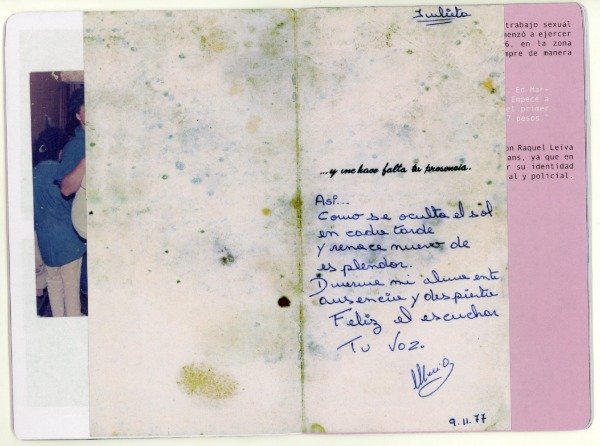 Julieta
...y me hace falta tu presencia.
Así...
Como se oculta el sol
en cada tarde
y renace nuevo de
esplendor.
Duerme mi alma ent
ausencia y despierta
Feliz el escuchar
Tu Voz.
9.11.77
trabajo sexual
menzó a ejercer
6, en la zona
mpre de manera
. En Mar-
Empecé a
el primer
7 pesos.
on Raquel Leiva
ans, ya que en
r su identidad
al y policial.